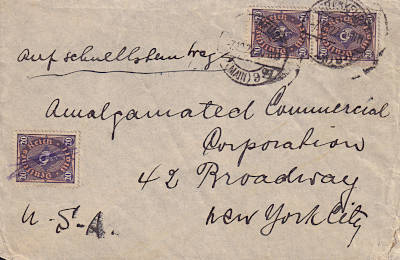 Auf schnellstem Weg
Amalgamated Commercial
Corporation
42 Broadway
New York City
U. S. A.
Deutsches Reich
20
20